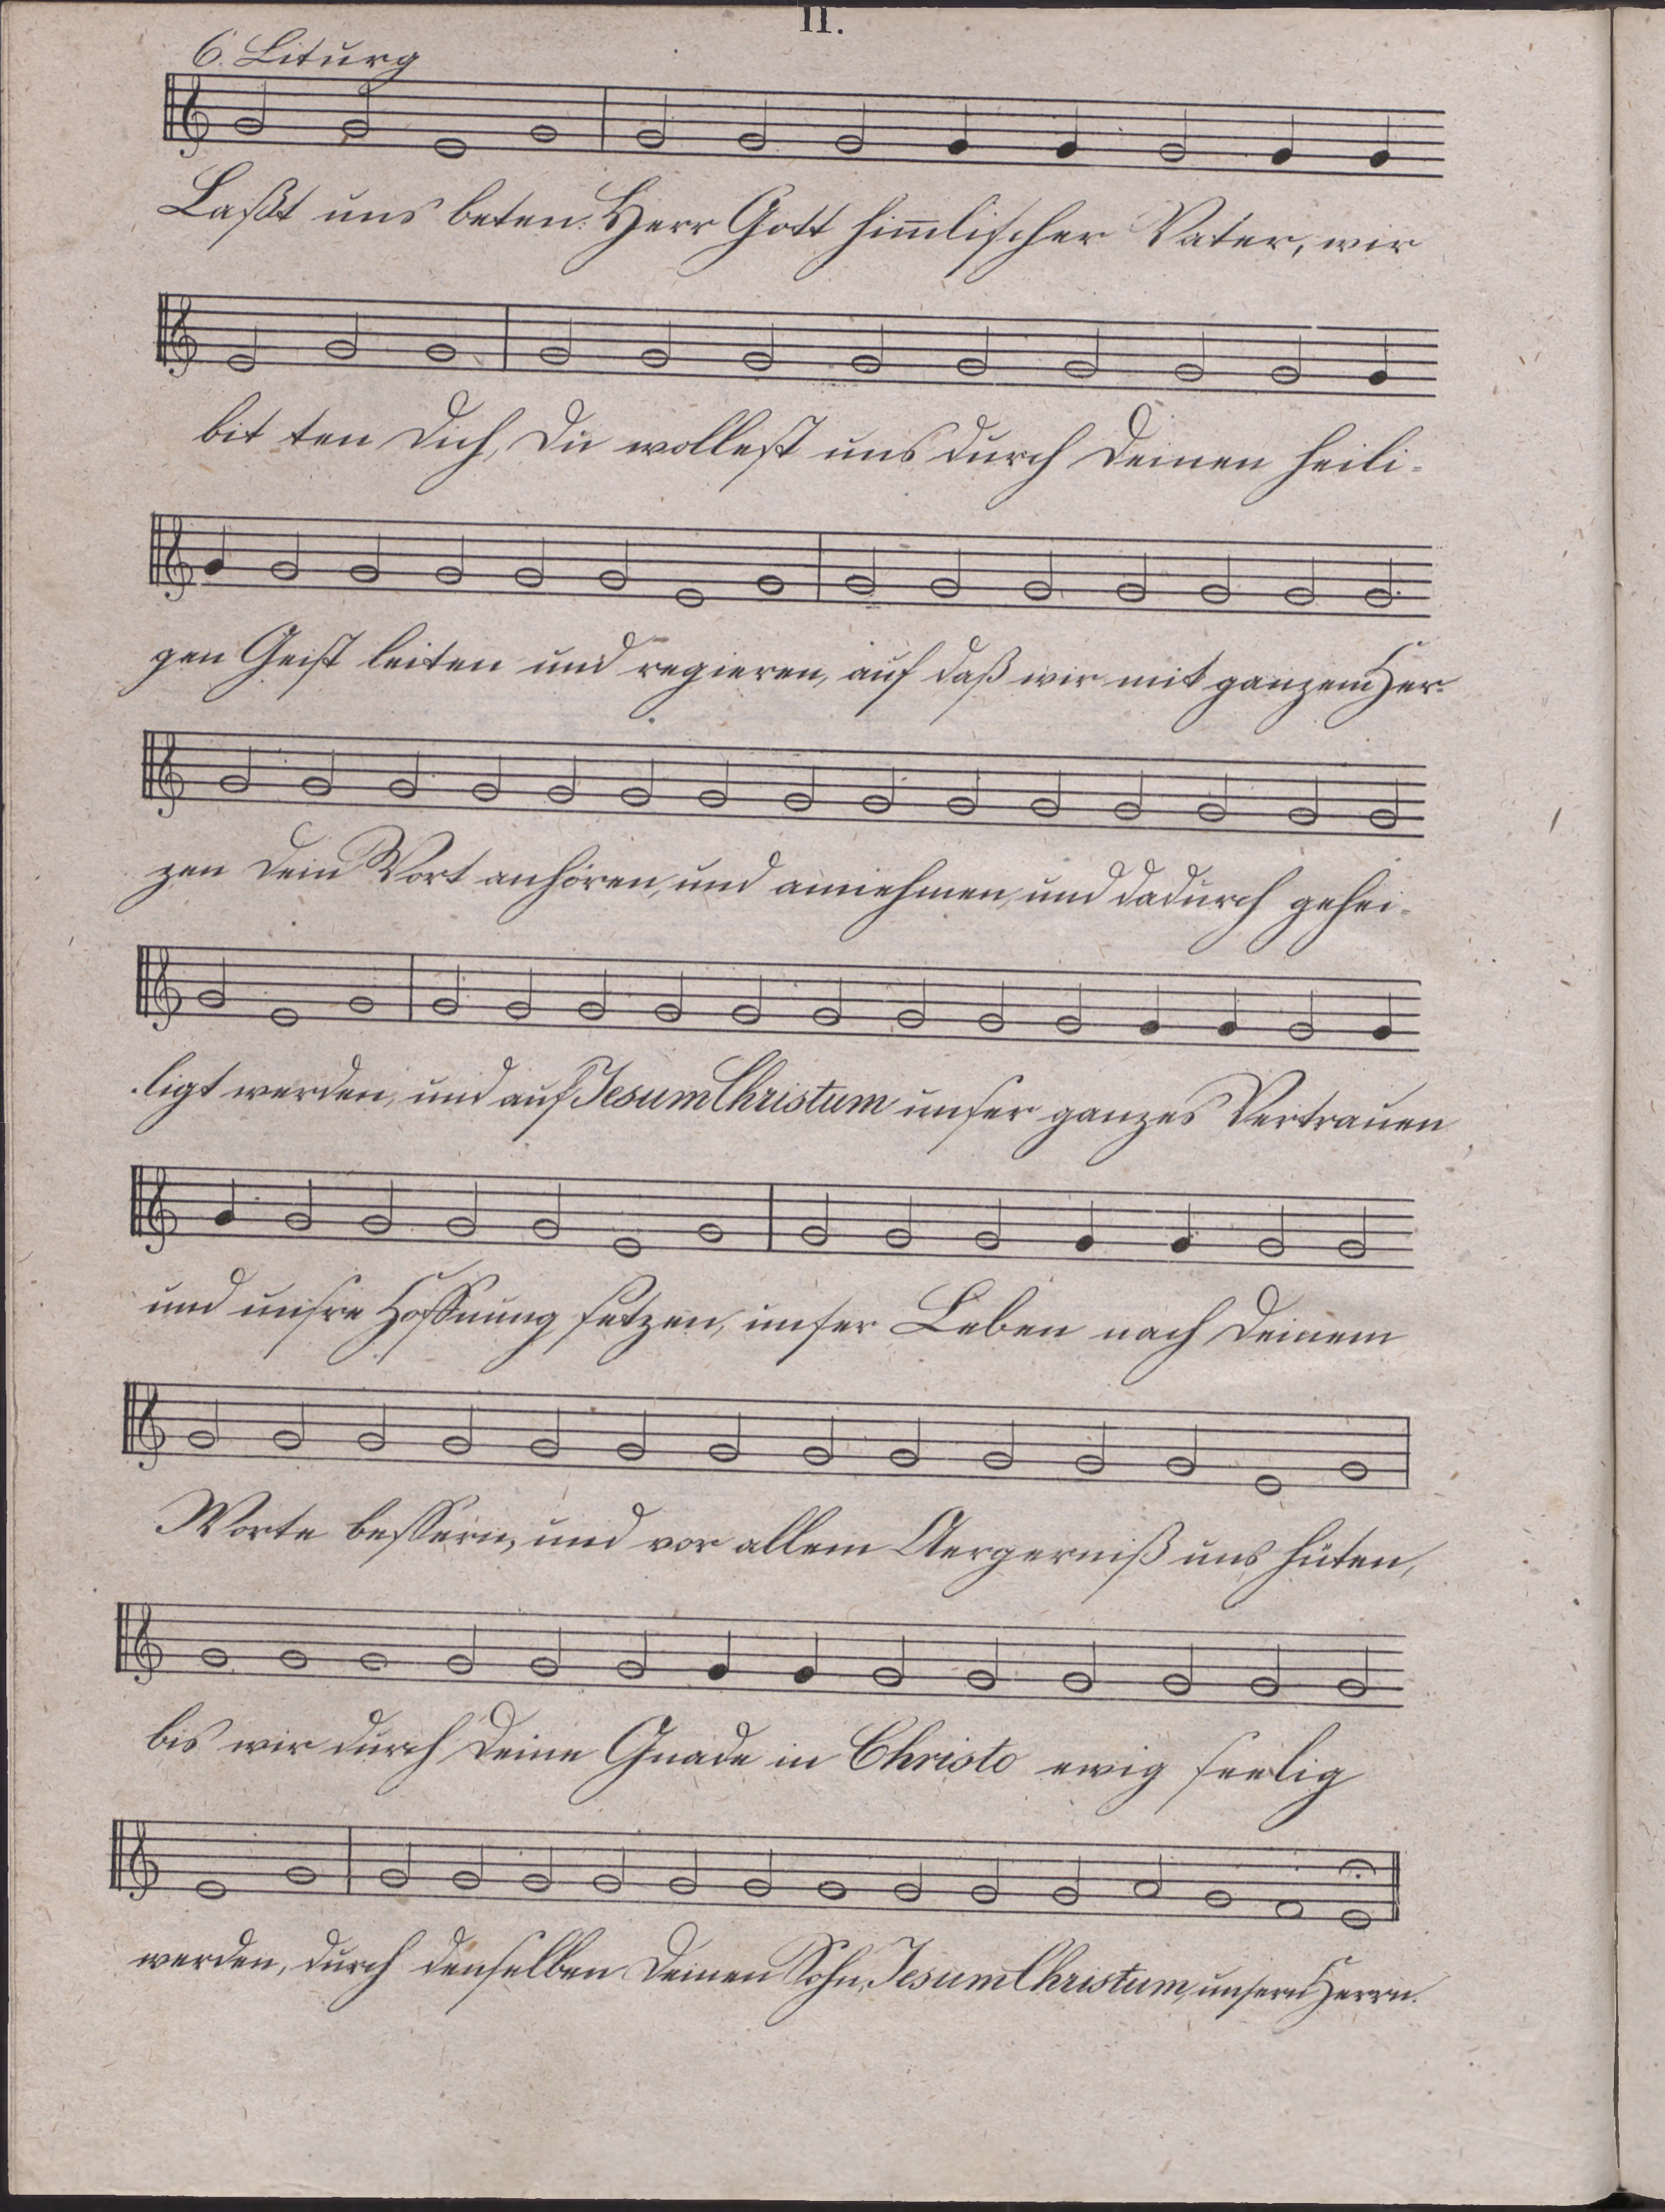 II.
6. Liturg
Laßt uns beten: Herr Gott him̅lischer Vater, wir
bit ten Dich, Du wollest uns durch Deinen heili-
gen Geist leiten und regieren, auf daß wir mit ganzem Her-
zen Dein Wort anhören, und annehmen, und dadurch gehei-
ligt werden, und auf Jesum Christum unser ganzes Vertrauen
und unsre Hoffnung setzen, unser Leben nach Deinem
Worte bessern, und vor allem Aergerniß uns hüten,
bis wir durch Deine Gnade in Christo ewig seelig
werden, durch denselben Deinen Sohn, Jesum Christum, unsern Herrn.